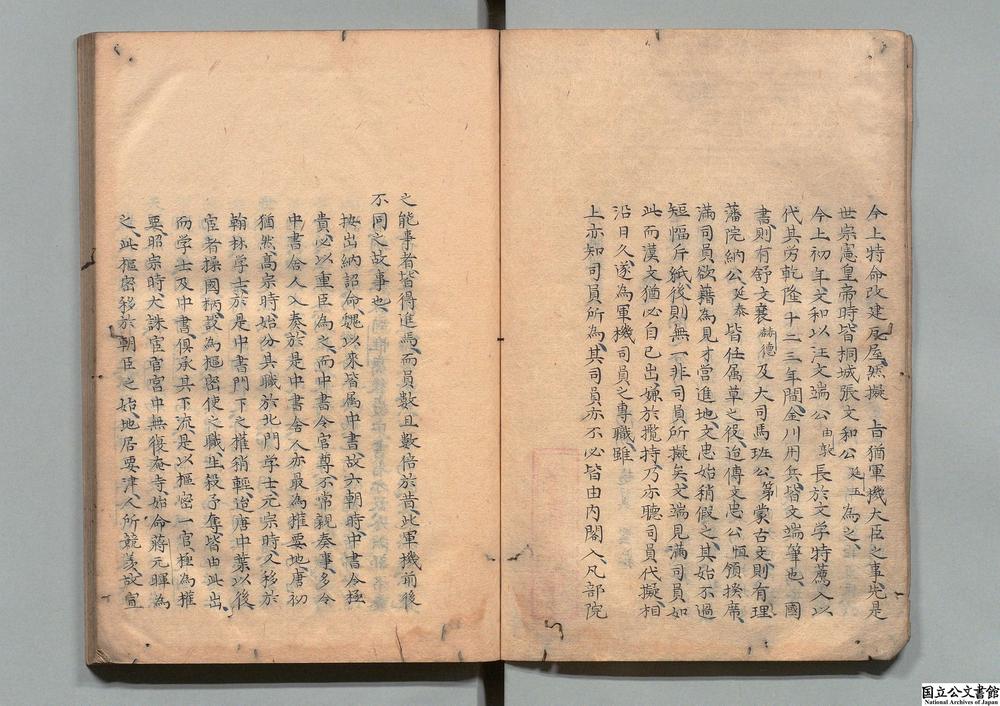 今上特命改建瓦屋然擬　旨猶軍機大臣之事先是
世宗憲皇帝時皆桐城張文和公廷玉為之
今上初年文和以汪文端公由敦長於文学特薦入以
代其労乾隆十二三年間金川用兵皆文端筆也國
書則有舒文襄赫德及大司馬班公第蒙古文則有理
藩院納公延泰皆任属草之役迨傅文忠公恒領揆席
滿司員欲藉為見才営進地文忠始稍假之其始不過
短幅片紙後則無一非司員所擬矣文端見滿司員如
此而漢文猶必自己出嫌於攬持乃亦聽司員代擬相
沿日久遂為軍機司員之專職雖
上亦知司員所為其司員亦不必皆由内閣入凡部院
之能事者皆得進焉而員數且數倍於昔此軍機前後
不同之故事也
按出納詔命魏以來皆属中書故六朝時中書令極
貴必以重臣為之而中書令官尊不常親奏事多令
中書舍人入奏於是中書舍人亦最為權要地唐初
猶然高宗時始分其職於北門学士元宗時又移於
翰林学士於是中書門下之權稍輕迨唐中葉以後
宦者操國柄設為樞密使之職生殺予奪皆由此出
而学士及中書俱承其下流是以樞密一官極為權
要昭宗時大誅宦官宮中無復奄寺始命蔣元暉為
之此樞密移於朝臣之始地居要津人所競羡故宣
国立公文書館
National Archives of Japan